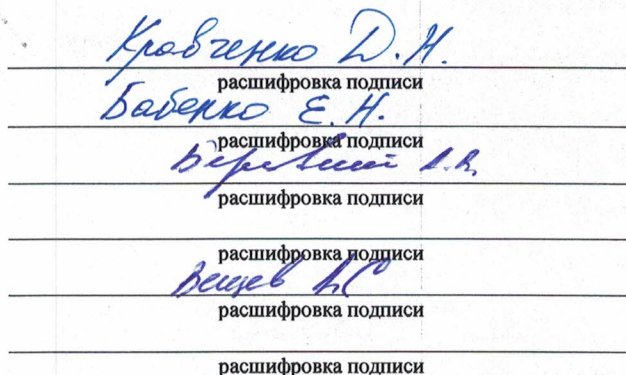 Кравченко Д.Н.
расшифровка подписи
Баберко Е.Н.
расшифровка подписи
расшифровка подписи
расшифровка подписи
Вещев
расшифровка подписи
расшифровка подписи